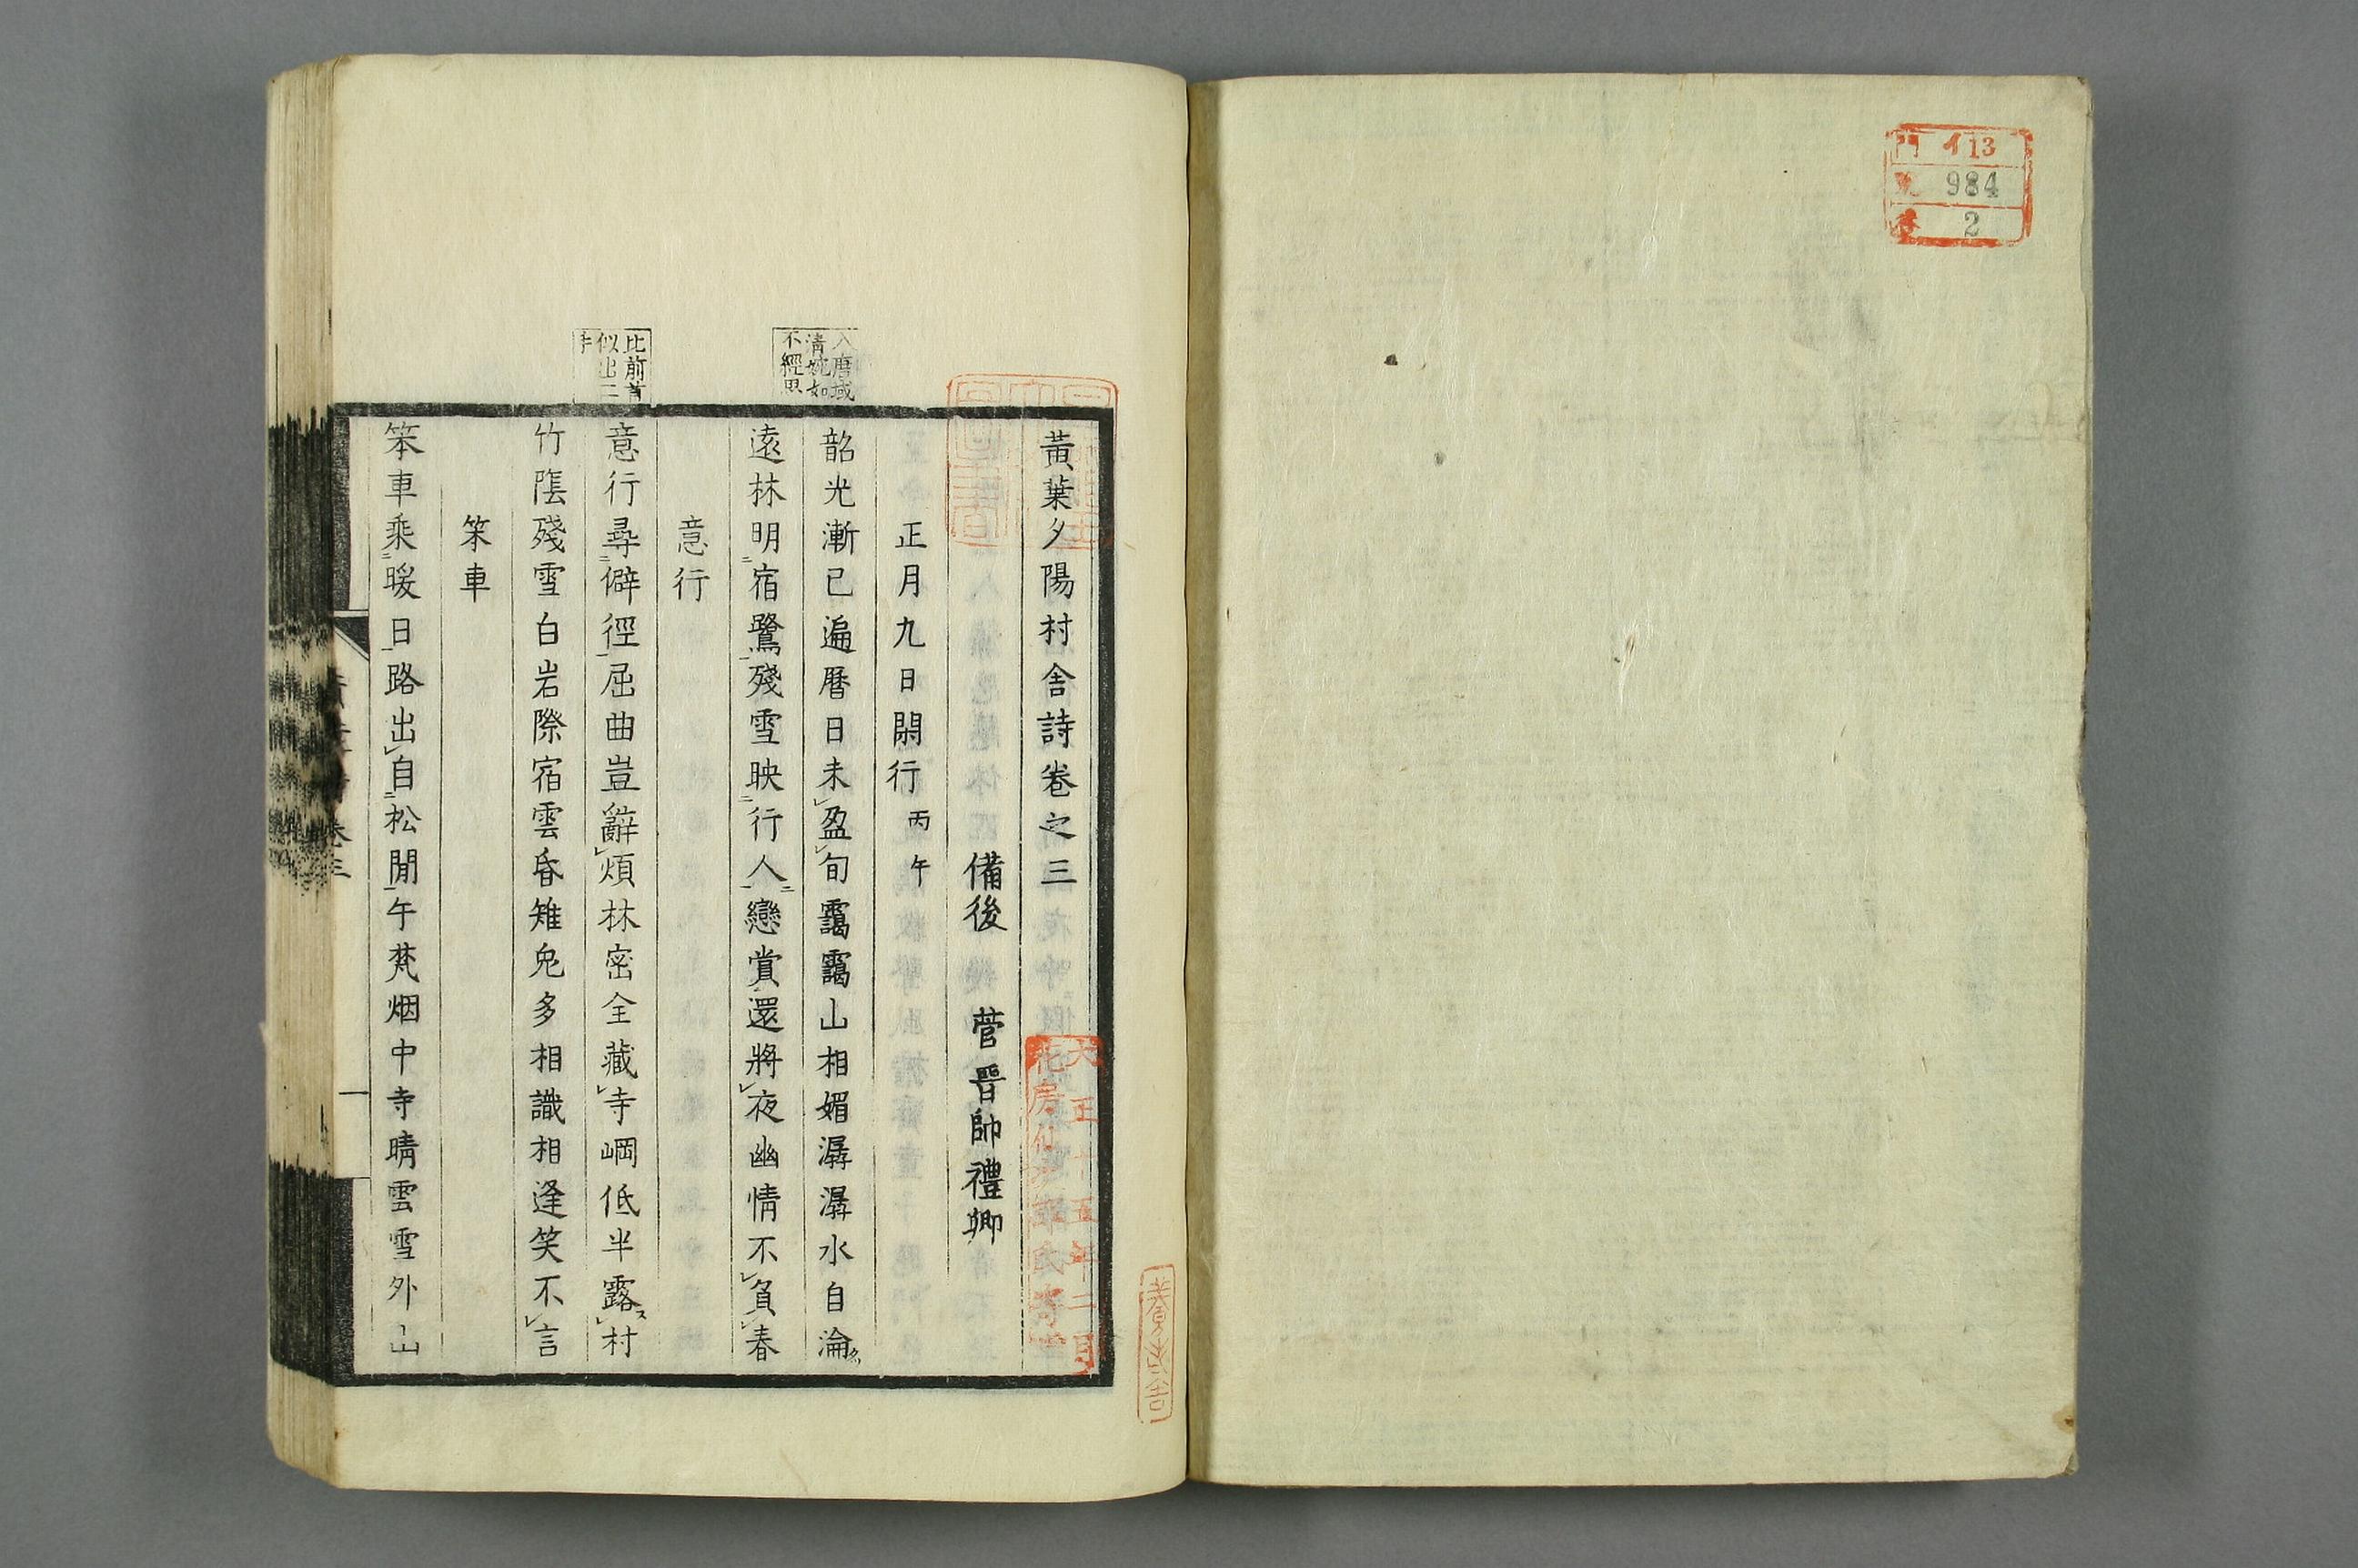 門 イ13
984
2
黃葉夕陽村舍詩卷之三
備後 菅晉帥禮卿
正月九日閑行 丙午
韶光漸已遍曆日未盈旬靄靄山相媚潺潺水自淪
遠林明宿鷺殘雪映行人戀賞還將夜幽情不負春
意行
意行尋僻徑屈曲豈辭煩林密全藏寺岡低半露村
竹陰殘雪白岩際宿雲昏雉兔多相識相逢笑不言
笨車
笨車乘暖日路出自松閒午梵烟中寺晴雲雪外山
入唐域
清婉如
不經思
比前首
似出二
手
大正十五年二月
卷三
一